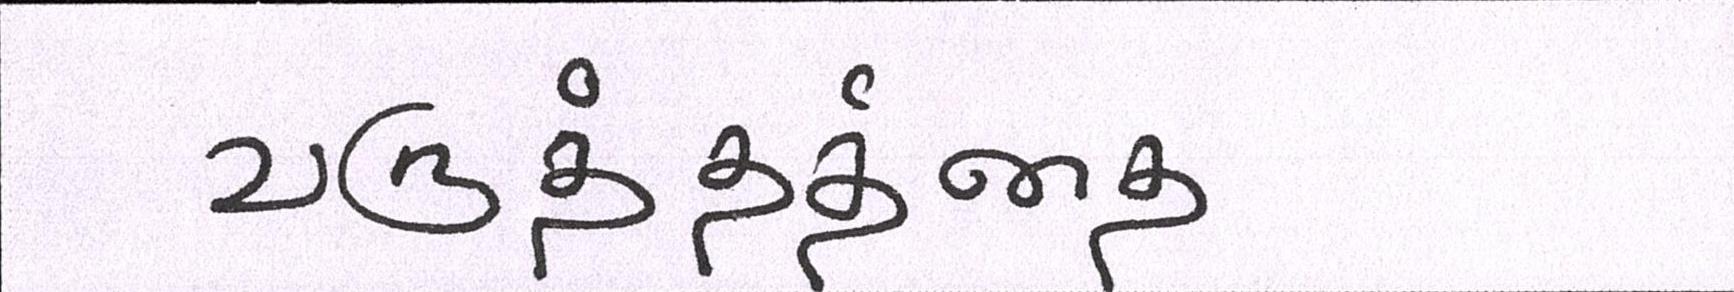 வருத்தத்தை